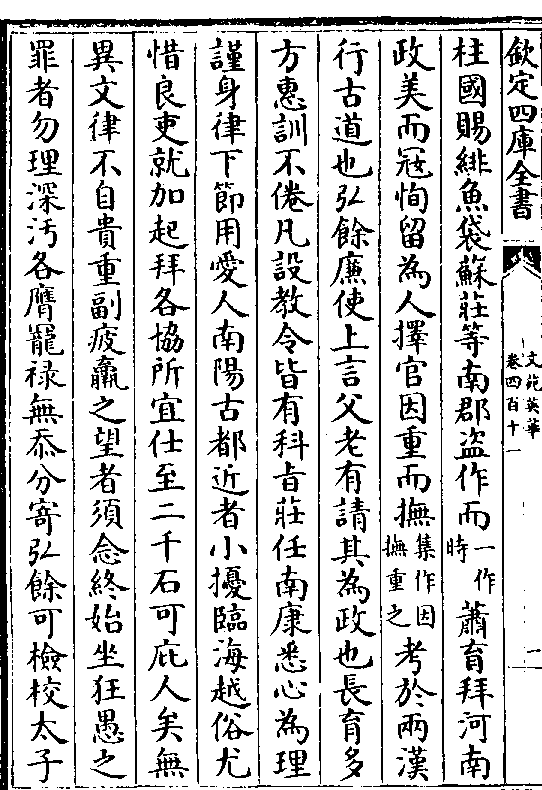 欽定四庫全書
文苑英華
卷四百十一
柱國賜緋魚袋蘇莊等南郡盗作而一作時蕭育拜河南
政美而冦恂留為人擇官因重而撫集作因撫重之考於兩漢
行古道也弘餘廉使上言父老有請其為政也長育多
方惠訓不倦凡設教令皆有科旨莊任南康悉心為理
謹身律下節用愛人南陽古都近者小擾臨海越俗尤
惜良吏就加起拜各協所宜仕至二千石可庇人矣無
異文律不自貴重副疲羸之望者須念終始坐狂愚之
罪者勿理深汚各膺寵禄無忝分寄弘餘可檢校太子